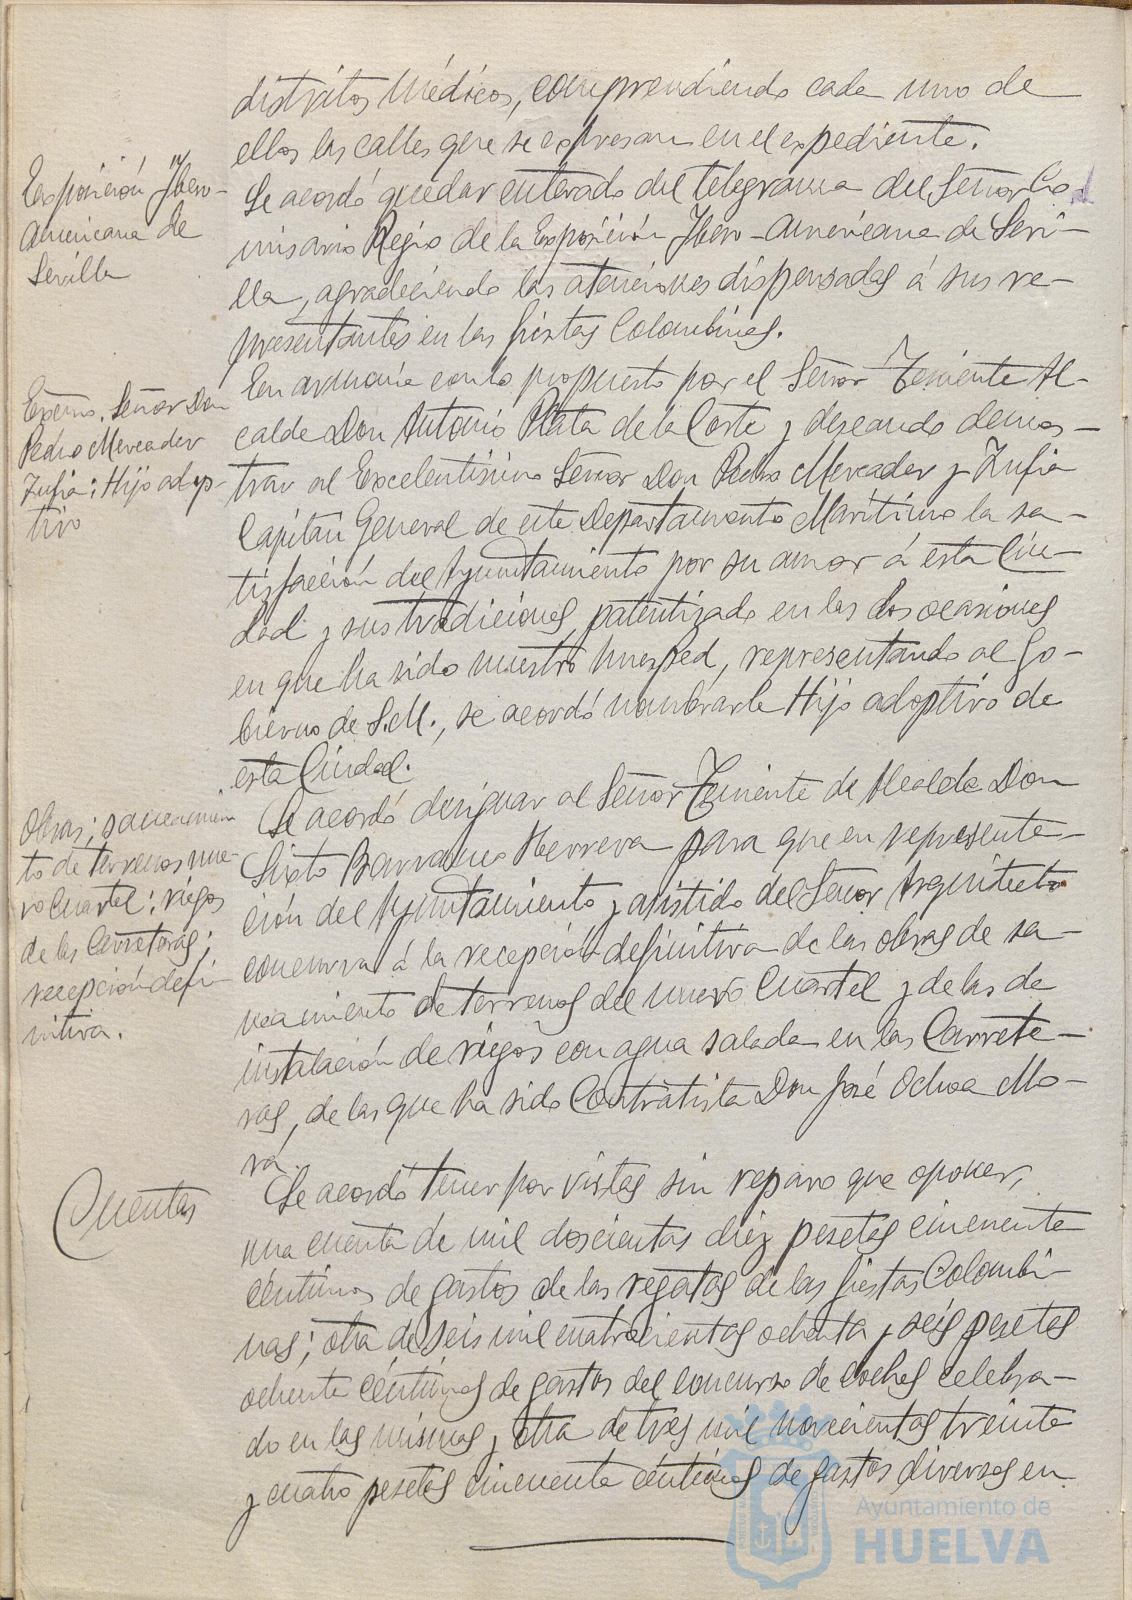 distritos Médicos, comprendiendo cada uno de
ellos las calles que se expresan en el expediente.
Exposición Ibero-
Americana de
Sevilla
Se acordó quedar enterado del telegrama del Señor Co-
misario Regio de la Exposición Ibero-Americana de Sevi-
lla, agradeciendo las atenciones dispensadas á sus re-
presentantes en las fiestas Colombinas.
Excmo. Señor Don
Pedro Mercader
Zufia: Hijo adop-
tivo
En armonía con lo propuesto por el Señor Teniente Al-
calde Don Antonio Plata de la Corte y deseando demos-
trar al Excelentísimo Señor Don Pedro Mercader y Zufia
Capitán General de este Departamento Marítimo la sa-
tisfacción del Ayuntamiento por su amor á esta Ciu-
dad y sus tradiciones, patentizado en las dos ocasiones
en que ha sido nuestro huesped, representando al Go-
bierno de S.M., se acordó nombrarle Hijo adoptivo de
esta Ciudad.
Obras; saneamien
to de terrenos nue-
vo Cuartel; riegos
de las Carreteras;
recepción defi-
nitiva.
Se acordó designar al Señor Teniente de Alcalde Don
Sixto Barranco Herrera para que en representa-
ción del Ayuntamiento y asistido del Señor Arquitecto
concurra á la recepción definitiva de las obras de sa-
neamiento de terrenos del nuevo Cuartel y de las de
instalación de riegos con agua salada en las Carrete-
ras, de las que ha sido Contratista Don José Ochoa Mo-
ra.
Cuentas
Se acordó tener por vistas sin reparo que oponer,
una cuenta de mil doscientas diez pesetas cincuenta
céntimos de gastos de las regatas de las fiestas Colombi-
nas; otra de seis mil cuatrocientas ochenta y seis pesetas
ochenta céntimos de gastos del concurso de coches celebra-
do en las mismas y otra de tres mil novecientas treinta
y cuatro pesetas cincuenta céntimos de gastos diversos en
Ayuntamiento de
HUELVA